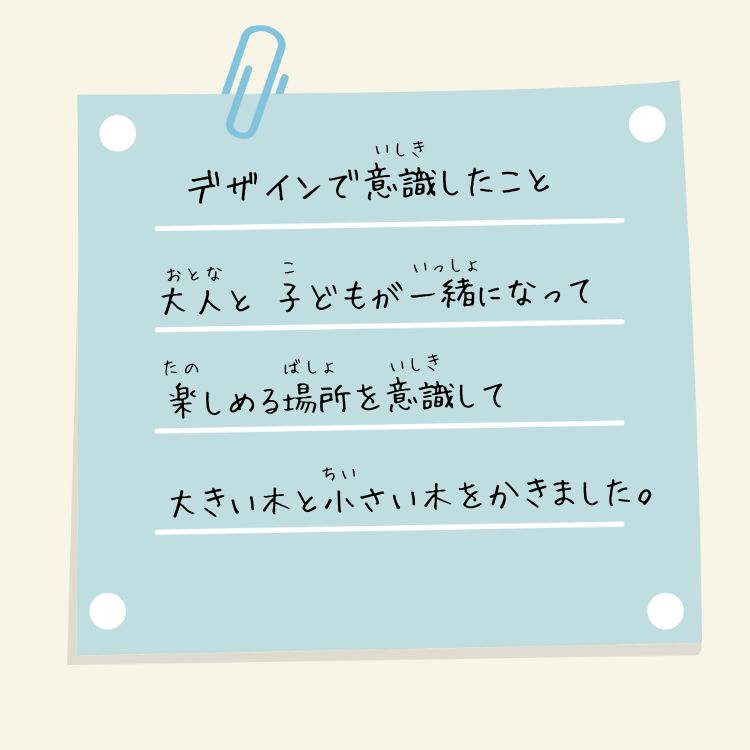 いしき
デザインで意識したこと
おとな こ いっしょ
大人と 子どもが一緒になって
たの ばしょ いしき
楽しめる場所を意識して
ちい
大きい木と小さい木をかきました。